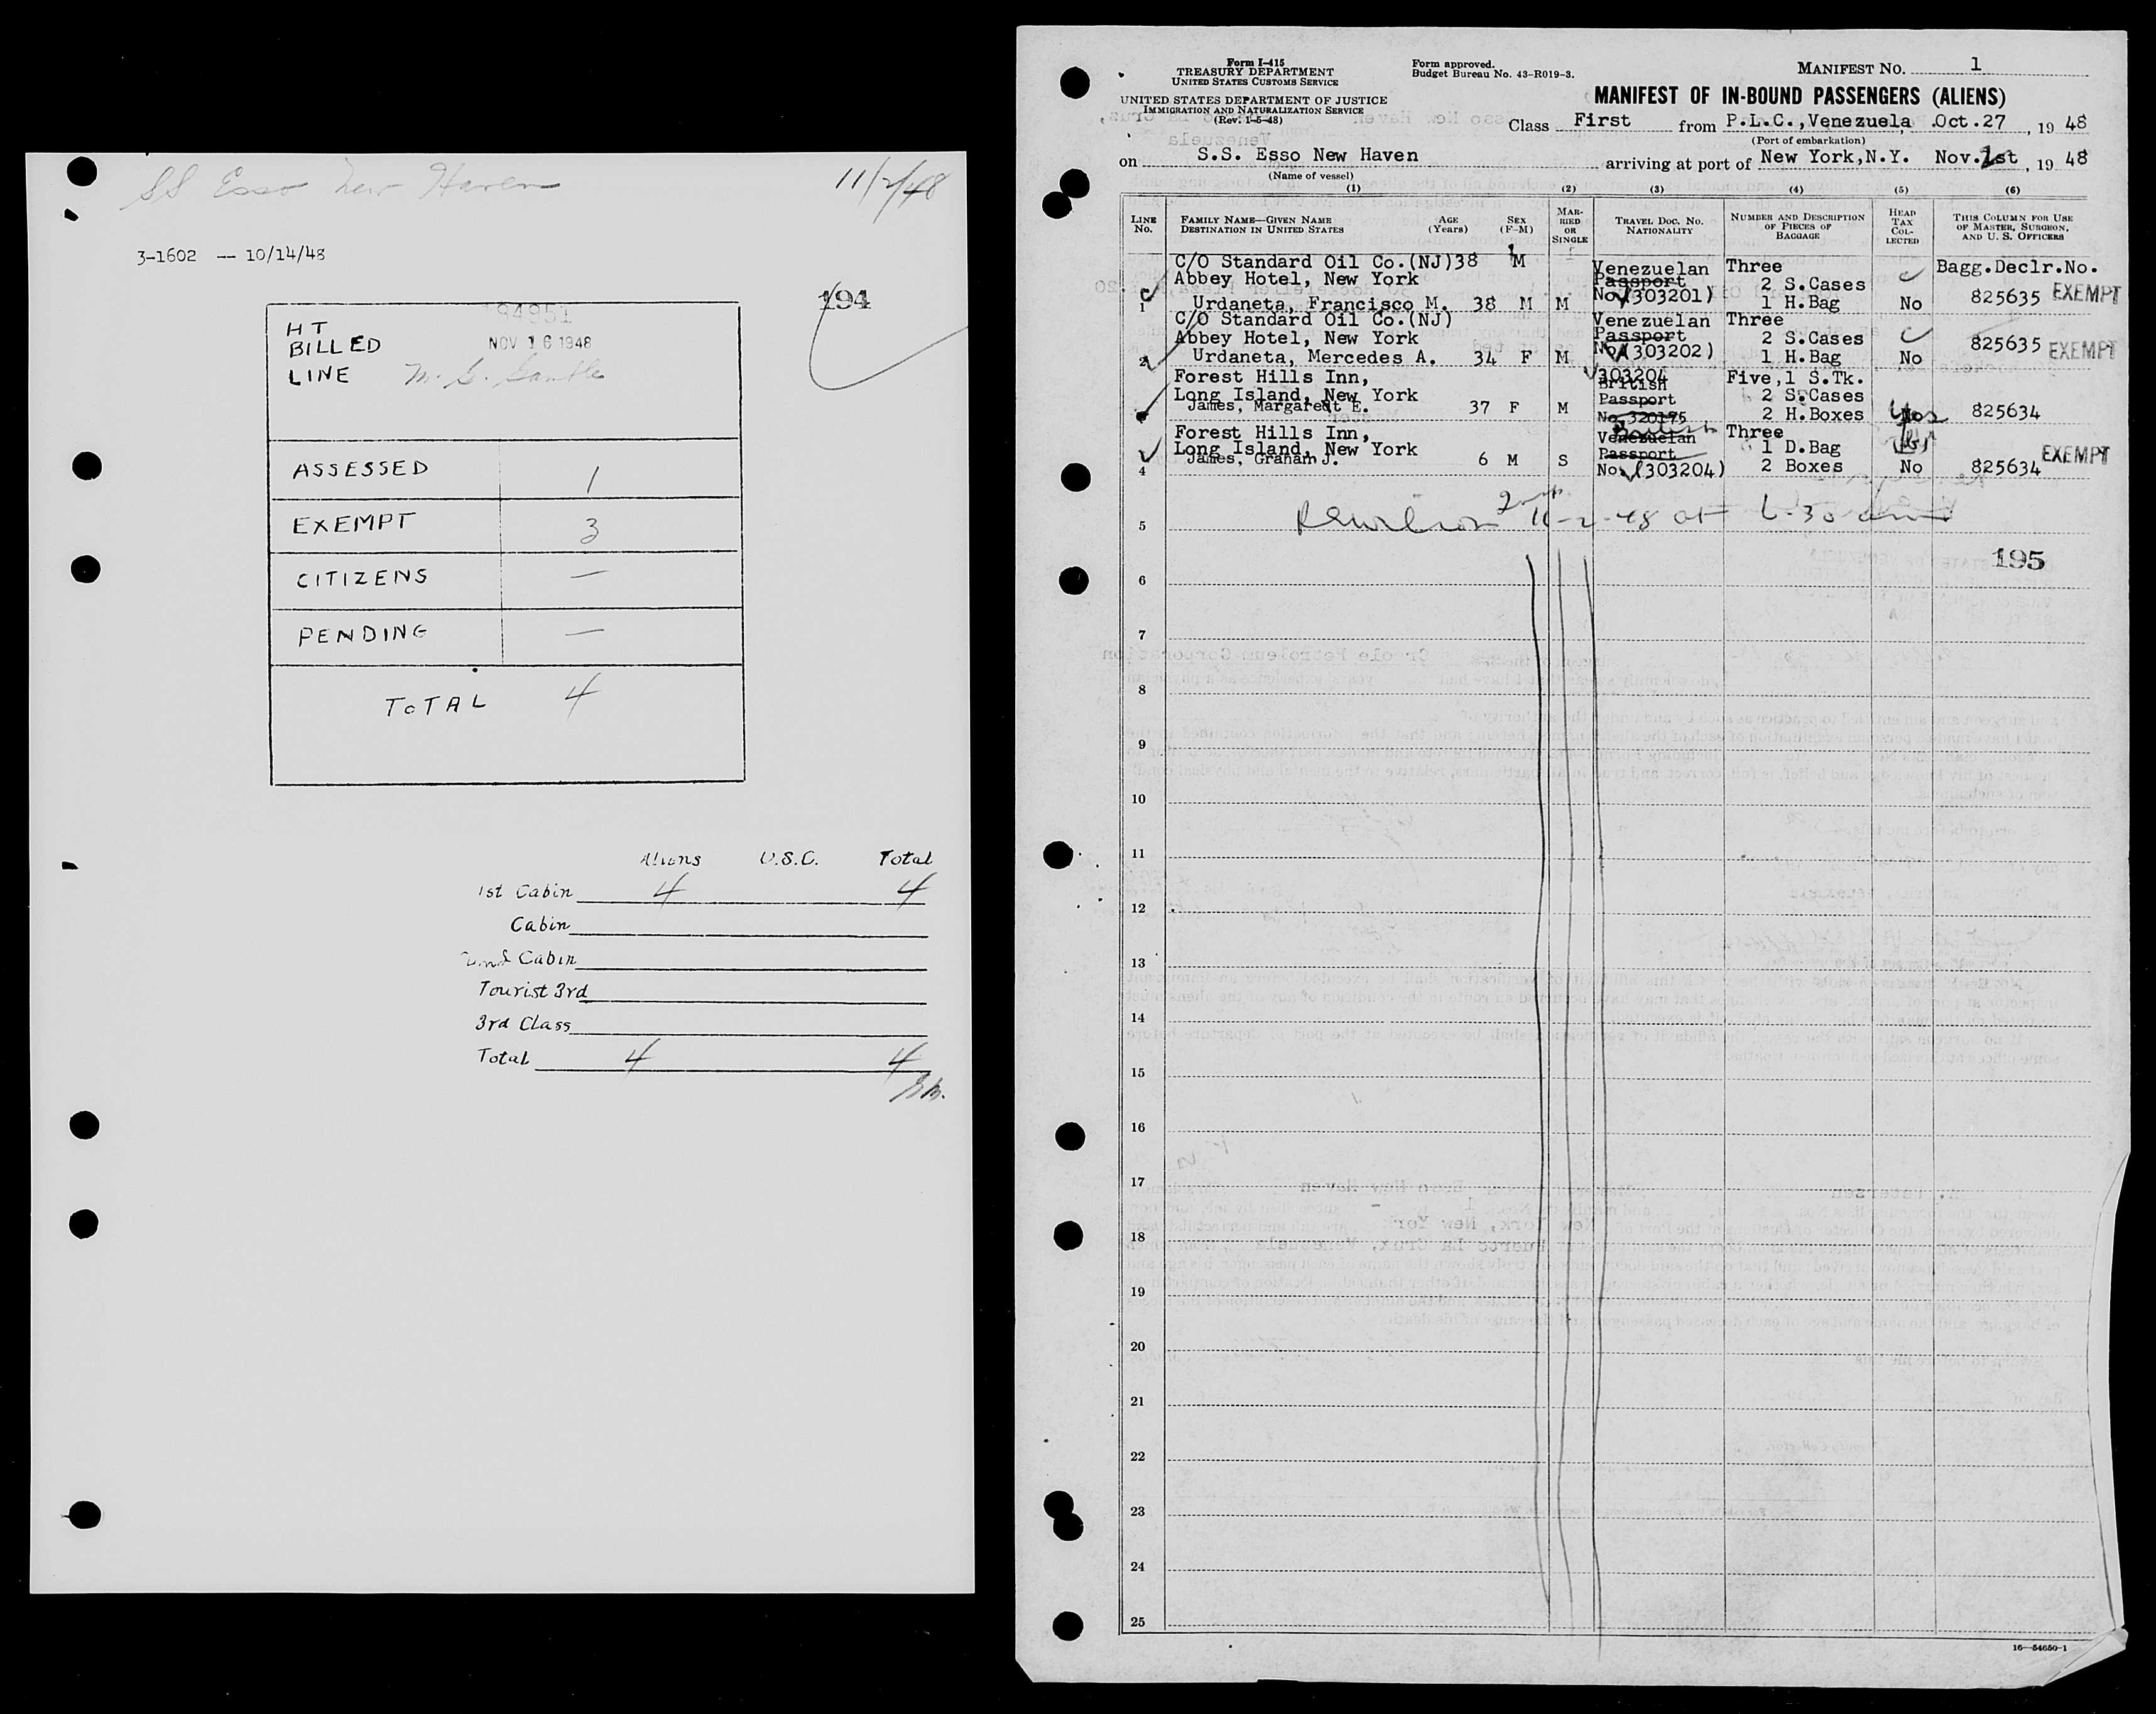 SS Esso New Haven
11/2/48
3-1602 -- 10/14/48
194
94951
HT
BILLED
LINE
NOV 16 1948
ASSESSED 1
EXEMPT 3
CITIZENS —
PENDING —
TOTAL 4
Aliens U.S.C. Total
1st Cabin 4 4
Cabin
2nd Cabin
Tourist 3rd
3rd Class
Total 4 4
Form I-415
TREASURY DEPARTMENT
UNITED STATES CUSTOMS SERVICE
UNITED STATES DEPARTMENT OF JUSTICE
IMMIGRATION AND NATURALIZATION SERVICE
(Rev. 1-5-48)
Form approved.
Budget Bureau No. 43-R019-3.
MANIFEST NO. 1
MANIFEST OF IN-BOUND PASSENGERS (ALIENS)
Class First from P.L.C., Venezuela Oct.27, 19 48
(Port of embarkation)
on S.S. Esso New Haven arriving at port of New York, N.Y. Nov. 1st, 19 48
(Name of vessel)
(1) (2) (3) (4) (5) (6)
LINE No.
FAMILY NAME—GIVEN NAME
DESTINATION IN UNITED STATES
AGE (Years)
SEX (F-M)
MARRIED OR SINGLE
TRAVEL DOC. NO.
NATIONALITY
NUMBER AND DESCRIPTION OF PIECES OF BAGGAGE
HEAD TAX COLLECTED
THIS COLUMN FOR USE OF MASTER, SURGEON, AND U. S. OFFICERS
C/O Standard Oil Co.(NJ)38 M Venezuelan Three Bagg.Declr.No.
Abbey Hotel, New York Passport 2 S.Cases
1 Urdaneta, Francisco M. 38 M M No.(303201) 1 H.Bag No 825635 EXEMPT
C/O Standard Oil Co.(NJ) Venezuelan Three
Abbey Hotel, New York Passport 2 S.Cases
2 Urdaneta, Mercedes A. 34 F M No.(303202) 1 H.Bag No 825635 EXEMPT
Forest Hills Inn, 303204 British Five,1 S.Tk.
Long Island, New York Passport 2 S.Cases
James, Margaret E. 37 F M No 320175 2 H.Boxes Yes 825634
Forest Hills Inn, British Venezuelan Three
Long Island, New York Passport 1 D.Bag
4 James, Graham J. 6 M S No.(303204) 2 Boxes No 825634 EXEMPT
5
195
6
7
8
9
10
11
12
13
14
15
16
17
18
19
20
21
22
23
24
25
16—54650-1